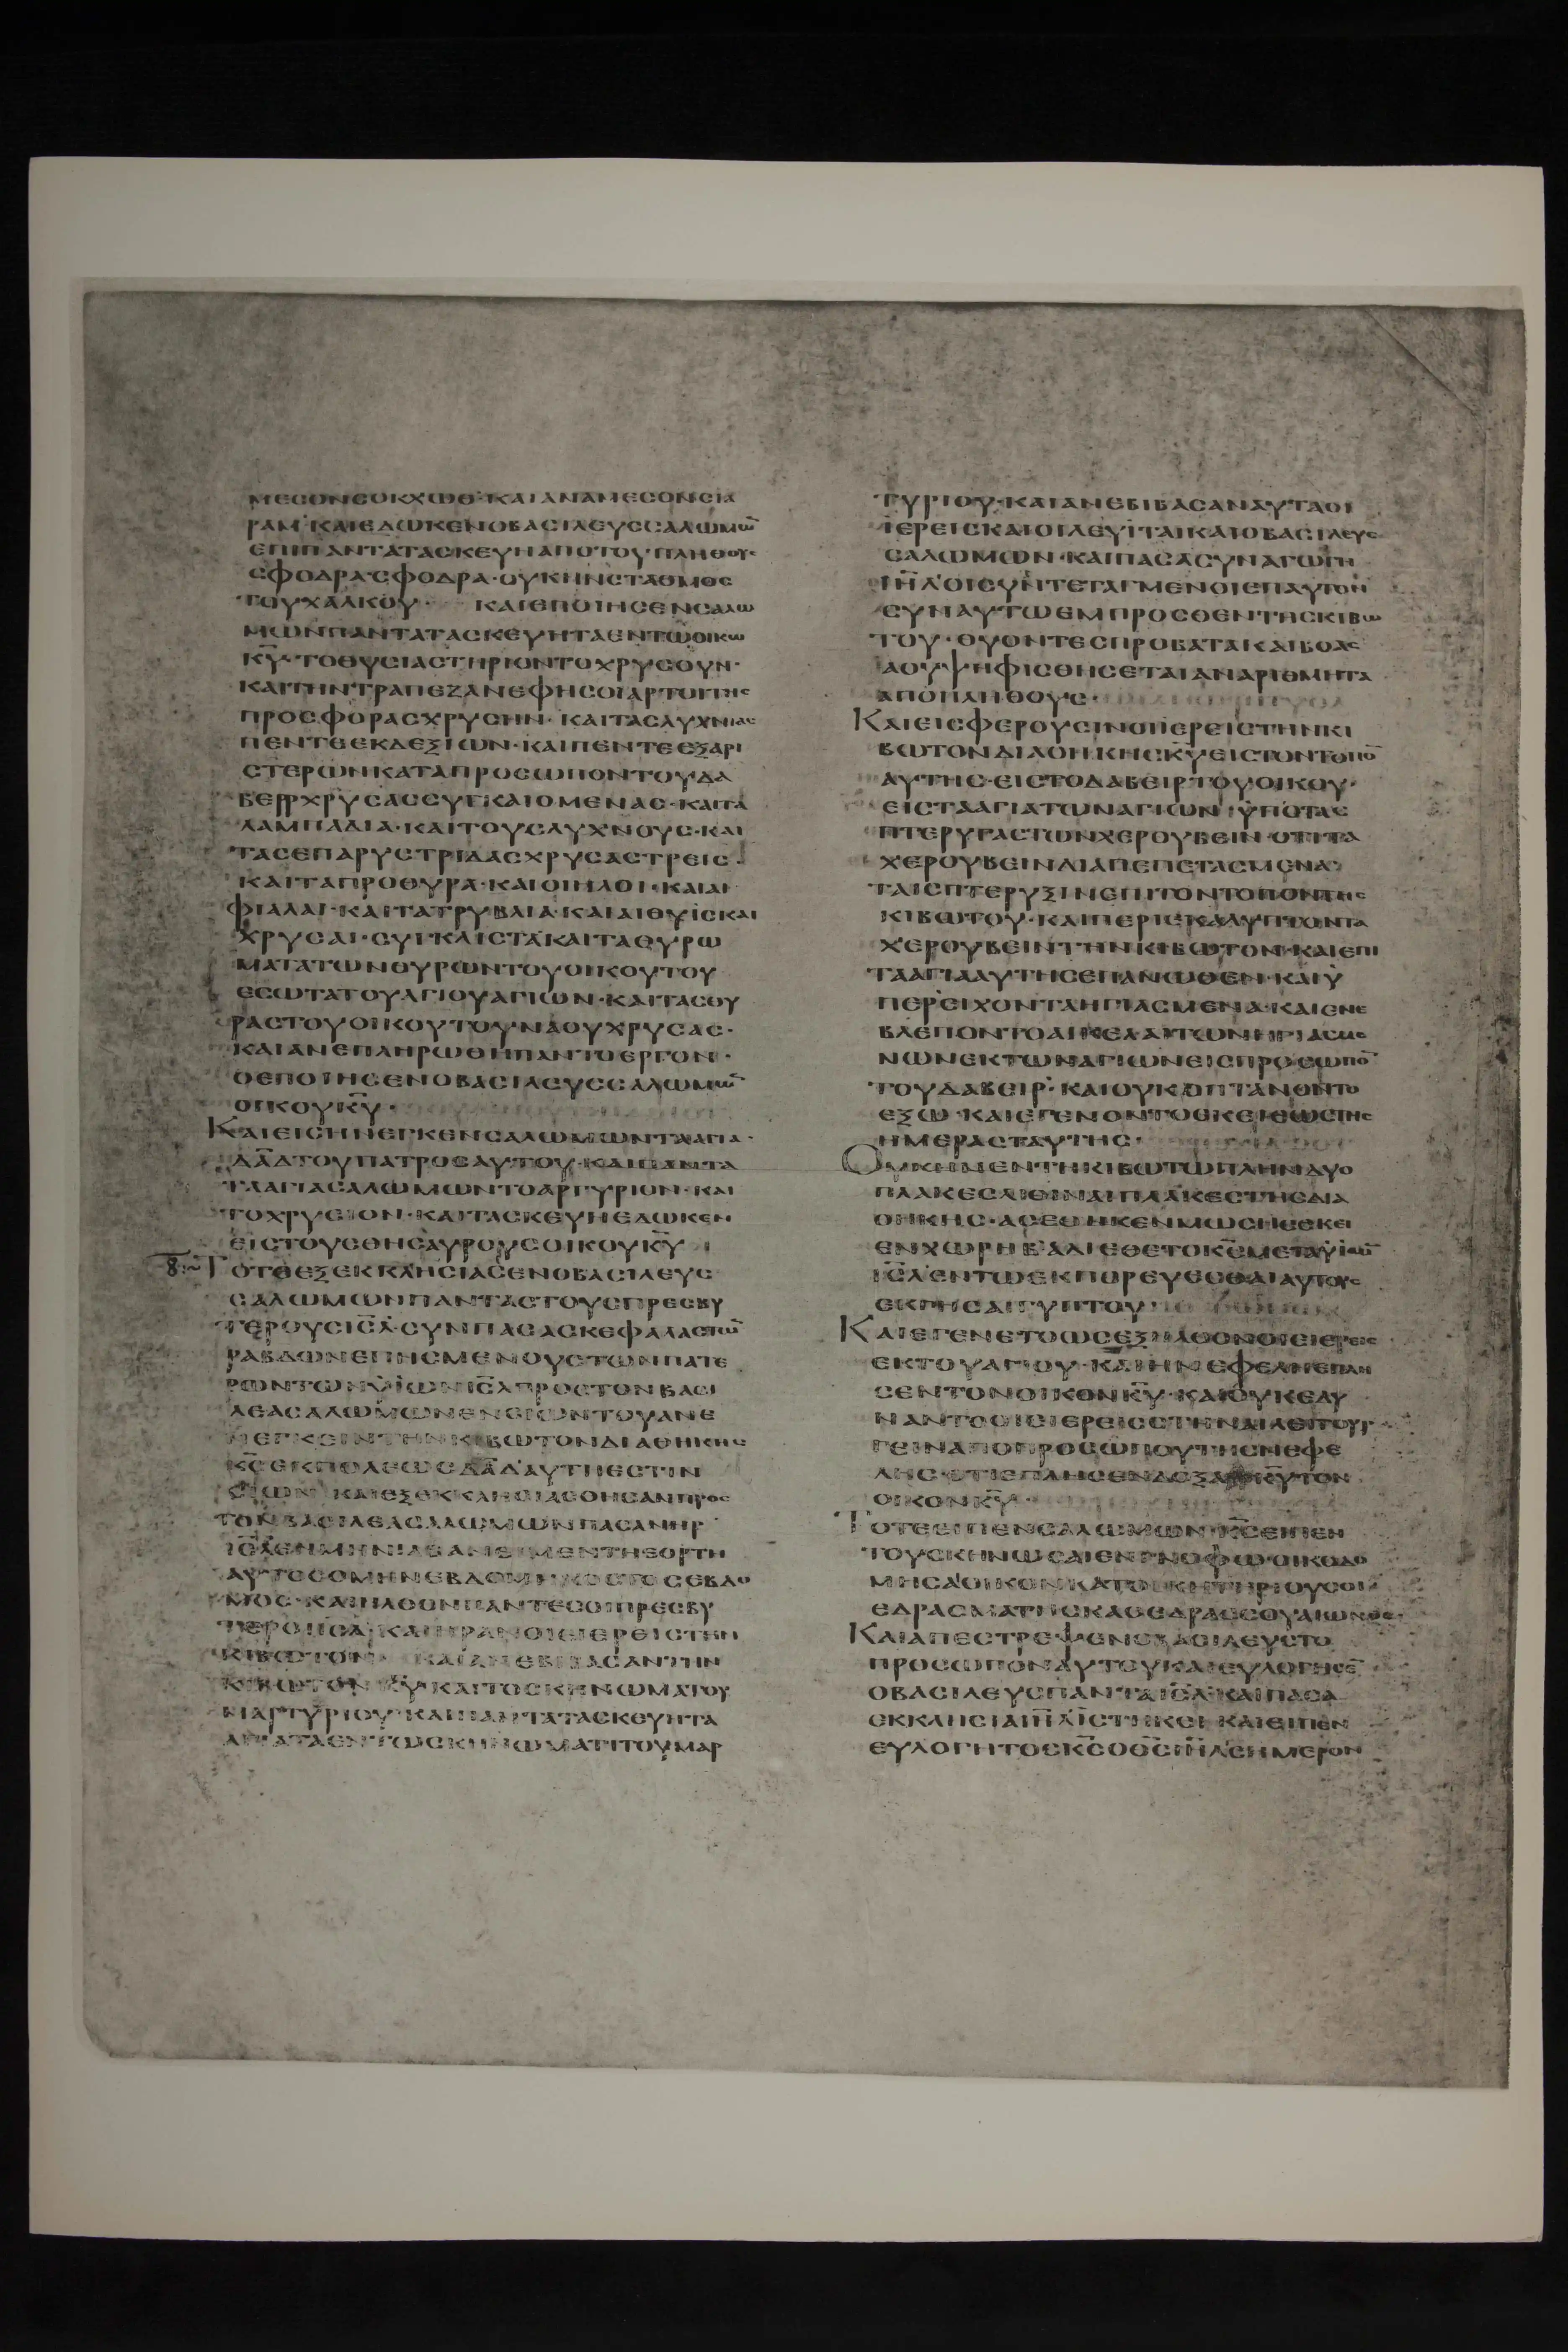 ΜΕСΟΝСΟΚΧΩΘ·ΚΑΙΑΝΑΜΕСΟΝСΙΑ
ΡΑΜ·ΚΑΙΕΔΩΚΕΝΟΒΑСΙΛΕΥССΑΛΩΜΩ̅
ΕΠΙΠΑΝΤΑΤΑСΚΕΥΗΑΠΟΤΟΥΠΛΗΘΟΥС
СΦΟΔΡΑСΦΟΔΡΑ·ΟΥΚΗΝСΤΑΘΜΟС
ΤΟΥΧΑΛΚΟΥ· ΚΑΙΕΠΟΙΗСΕΝСΑΛΩ
ΜΩΝΠΑΝΤΑΤΑСΚΕΥΗΤΑΕΝΤΩΟΙΚΩ
Κ̅Υ̅·ΤΟΘΥСΙΑСΤΗΡΙΟΝΤΟΧΡΥСΟΥΝ·
ΚΑΙΤΗΝΤΡΑΠΕΖΑΝΕΦΗСΟΙΑΡΤΟΙΤΗС
ΠΡΟСΦΟΡΑСΧΡΥСΗΝ·ΚΑΙΤΑСΛΥΧΝΙΑС
ΠΕΝΤΕΕΚΔΕΞΙΩΝ·ΚΑΙΠΕΝΤΕΕΞΑΡΙ
СΤΕΡΩΝΚΑΤΑΠΡΟСΩΠΟΝΤΟΥΔΑ
ΒΕΙΡΧΡΥСΑССΥΓΚΑΙΟΜΕΝΑС·ΚΑΙΤΑ
ΛΑΜΠΑΔΙΑ·ΚΑΙΤΟΥСΛΥΧΝΟΥС·ΚΑΙ
ΤΑСΕΠΑΡΥСΤΡΙΔΑСΧΡΥСΑСΤΡΕΙС·
ΚΑΙΤΑΠΡΟΘΥΡΑ·ΚΑΙΟΙΗΛΟΙ·ΚΑΙΑΙ
ΦΙΑΛΑΙ·ΚΑΙΤΑΤΡΥΒΛΙΑ·ΚΑΙΑΙΘΥΙСΚΑΙ
ΧΡΥСΑΙ·СΥΓΚΛΙСΤΑΚΑΙΤΑΘΥΡΩ
ΜΑΤΑΤΩΝΘΥΡΩΝΤΟΥΟΙΚΟΥΤΟΥ
ΕСΩΤΑΤΟΥΑΓΙΟΥΑΓΙΩΝ·ΚΑΙΤΑСΘΥ
ΡΑСΤΟΥΟΙΚΟΥΤΟΥΝΑΟΥΧΡΥСΑС·
ΚΑΙΑΝΕΠΛΗΡΩΘΗΠΑΝΤΟΕΡΓΟΝ·
ΟΕΠΟΙΗСΕΝΟΒΑСΙΛΕΥССΑΛΩΜΩ̅
ΟΙΚΟΥΚ̅Υ̅·
ΚΑΙΕΙСΗΝΕΓΚΕΝСΑΛΩΜΩΝΤΑΑΓΙΑ·
Δ̅Α̅Δ̅ΤΟΥΠΑΤΡΟСΑΥΤΟΥ·ΚΑΙΠΑΝΤΑ
ΤΑΑΓΙΑСΑΛΩΜΩΝΤΟΑΡΓΥΡΙΟΝ·ΚΑΙ
ΤΟΧΡΥСΙΟΝ·ΚΑΙΤΑСΚΕΥΗΕΔΩΚΕΝ
ΕΙСΤΟΥСΘΗСΑΥΡΟΥСΟΙΚΟΥΚ̅Υ̅
8:~ΤΟΤΕΕΞΕΚΚΛΗСΙΑСΕΝΟΒΑСΙΛΕΥС
СΑΛΩΜΩΝΠΑΝΤΑСΤΟΥСΠΡΕСΒΥ
ΤΕΡΟΥСΙ̅С̅Λ̅·СΥΝΠΑСΑСΚΕΦΑΛΑСΤΩ̅
ΡΑΒΔΩΝΕΠΗСΜΕΝΟΥСΤΩΝΠΑΤΕ
ΡΩΝΤΩΝΥΙΩΝΙ̅С̅Λ̅ΠΡΟСΤΟΝΒΑСΙ
ΛΕΑСΑΛΩΜΩΝΕΝСΙΩΝΤΟΥΑΝΕ
ΝΕΓΚΕΙΝΤΗΝΚΙΒΩΤΟΝΔΙΑΘΗΚΗС
Κ̅С̅ΕΚΠΟΛΕΩСΔ̅Α̅Δ̅ΑΥΤΗΕСΤΙΝ
СΙΩΝ ΚΑΙΕΞΕΚΚΛΗСΙΑСΘΗСΑΝΠΡΟС
ΤΟΝΒΑСΙΛΕΑСΑΛΩΜΩΝΠΑСΑΝΗΡ
ΑΥΤΟСΟΜΗΝΕΒΔΟΜΗΚΟСΤΟСΕΒΔΟ
ΜΟС·ΚΑΙΗΛΘΟΝΠΑΝΤΕСΟΙΠΡΕСΒΥ
ΤΕΡΟΙΙ̅С̅Λ̅·ΚΑΙΗΡΑΝΟΙΕΙΕΡΕΙСΤΗΝ
ΚΙΒΩΤΟΝ· ΚΑΙΑΝΕΒΙΒΑСΑΝΤΗΝ
ΚΙΒΩΤΟΝΚ̅Υ̅·ΚΑΙΤΟСΚΗΝΩΜΑΤΟΥ
ΜΑΡΤΥΡΙΟΥ·ΚΑΙΠΑΝΤΑΤΑСΚΕΥΗΤΑ
ΑΓΙΑΤΑΕΝΤΩСΚΗΝΩΜΑΤΙΤΟΥΜΑΡ
ΤΥΡΙΟΥ·ΚΑΙΑΝΕΒΙΒΑСΑΝΑΥΤΑΟΙ
ΙΕΡΕΙСΚΑΙΟΙΛΕΥΙΤΑΙΚΑΙΟΒΑСΙΛΕΥС
СΑΛΩΜΩΝ·ΚΑΙΠΑСΑСΥΝΑΓΩΓΗ
Ι̅Η̅Λ̅ΟΙСΥΝΤΕΤΑΓΜΕΝΟΙΕΠΑΥΤΟΝ
СΥΝΑΥΤΩΕΜΠΡΟСΘΕΝΤΗСΚΙΒΩ
ΤΟΥ·ΘΥΟΝΤΕСΠΡΟΒΑΤΑΚΑΙΒΟΑС
ΑΟΥΨΗΦΙСΘΗСΕΤΑΙΑΝΑΡΙΘΜΗΤΑ
ΑΠΟΠΛΗΘΟΥС·
ΚΑΙΕΙСΦΕΡΟΥСΙΝΟΙΙΕΡΕΙСΤΗΝΚΙ
ΒΩΤΟΝΔΙΑΘΗΚΗСΚ̅Υ̅ΕΙСΤΟΝΤΟΠΟ̅
ΑΥΤΗС·ΕΙСΤΟΔΑΒΕΙΡΤΟΥΟΙΚΟΥ·
ΕΙСΤΑΑΓΙΑΤΩΝΑΓΙΩΝ·ΥΠΟΤΑС
ΠΤΕΡΥΓΑСΤΩΝΧΕΡΟΥΒΕΙΝ·ΟΤΙΤΑ
ΧΕΡΟΥΒΕΙΝΔΙΑΠΕΠΕΤΑСΜΕΝΑ
ΤΑΙСΠΤΕΡΥΞΙΝΕΠΙΤΟΝΤΟΠΟΝΤΗС
ΚΙΒΩΤΟΥ·ΚΑΙΠΕΡΙΕΚΑΛΥΠΤΟΝΤΑ
ΧΕΡΟΥΒΕΙΝΤΗΝΚΙΒΩΤΟΝ·ΚΑΙΕΠΙ
ΤΑΑΓΙΑΑΥΤΗСΕΠΑΝΩΘΕΝ·ΚΑΙΥ
ΠΕΡΕΙΧΟΝΤΑΗΓΙΑСΜΕΝΑ·ΚΑΙΕΝΕ
ΒΛΕΠΟΝΤΟΑΙΚΕΑΛΑΙΤΩΝΗΓΙΑСΜΕ
ΝΩΝΕΚΤΩΝΑΓΙΩΝΕΙСΠΡΟСΩΠΟ̅
ΤΟΥΔΑΒΕΙΡ·ΚΑΙΟΥΚΩΠΤΑΝΟΝΤΟ
ΕΞΩ·ΚΑΙΕΓΕΝΟΝΤΟΕΚΕΙΕΩСΤΗС
ΗΜΕΡΑСΤΑΥΤΗС·
ΟΥΚΗΝΕΝΤΗΚΙΒΩΤΩΠΛΗΝΔΥΟ
ΠΛΑΚΕСΛΙΘΙΝΑΙΠΛΑΚΕСΤΗСΔΙΑ
ΘΗΚΗС·ΑСΕΘΗΚΕΝΜΩСΗСΕΚΕΙ
ΕΝΧΩΡΗΒ·ΑΔΙΕΘΕΤΟΚ̅С̅ΜΕΤΑΥΙΩ̅
Ι̅С̅Λ̅ΕΝΤΩΕΚΠΟΡΕΥΕСΘΑΙΑΥΤΟΥС
ΕΚΓΗСΑΙΓΥΠΤΟΥ·
ΚΑΙΕΓΕΝΕΤΟΩСΕΞΗΛΘΟΝΟΙΕΙΕΡΕΙС
ΕΚΤΟΥΑΓΙΟΥ·ΚΑΙΗΝΕΦΕΛΗΕΠΛΗ
СΕΝΤΟΝΟΙΚΟΝΚ̅Υ̅·ΚΑΙΟΥΚΕΔΥ
ΝΑΝΤΟΟΙΕΙΕΡΕΙССΤΗΝΑΙΛΕΙΤΟΥΡ
ΓΕΙΝΑΠΟΠΡΟСΩΠΟΥΤΗСΝΕΦΕ
ΛΗС·ΟΤΙΕΠΛΗСΕΝΔΟΞΑΚ̅Υ̅ΤΟΝ
ΟΙΚΟΝΚ̅Υ̅·
ΤΟΤΕΕΙΠΕΝСΑΛΩΜΩΝ·Κ̅С̅ΕΙΠΕΝ
ΤΟΥСΚΗΝΩСΑΙΕΝΓΝΟΦΩ·ΟΙΚΟΔΟ
ΕΔΡΑСΜΑΤΗСΚΑΘΕΔΡΑССΟΥΑΙΩΝΟС·
ΚΑΙΑΠΕСΤΡΕΨΕΝΟΒΑСΙΛΕΥСΤΟ
ΠΡΟСΩΠΟΝΑΥΤΟΥΚΑΙΕΥΛΟΓΗСΕ̅
ΟΒΑСΙΛΕΥСΠΑΝΤΑΙ̅С̅Λ̅·ΚΑΙΠΑСΑ
ΕΚΚΛΗСΙΑΙ̅Η̅Λ̅ΙСΤΗΚΕΙ·ΚΑΙΕΙΠΕΝ
ΕΥΛΟΓΗΤΟСΚ̅С̅ΟΘ̅С̅Ι̅Η̅Λ̅СΗΜΕΡΟΝ